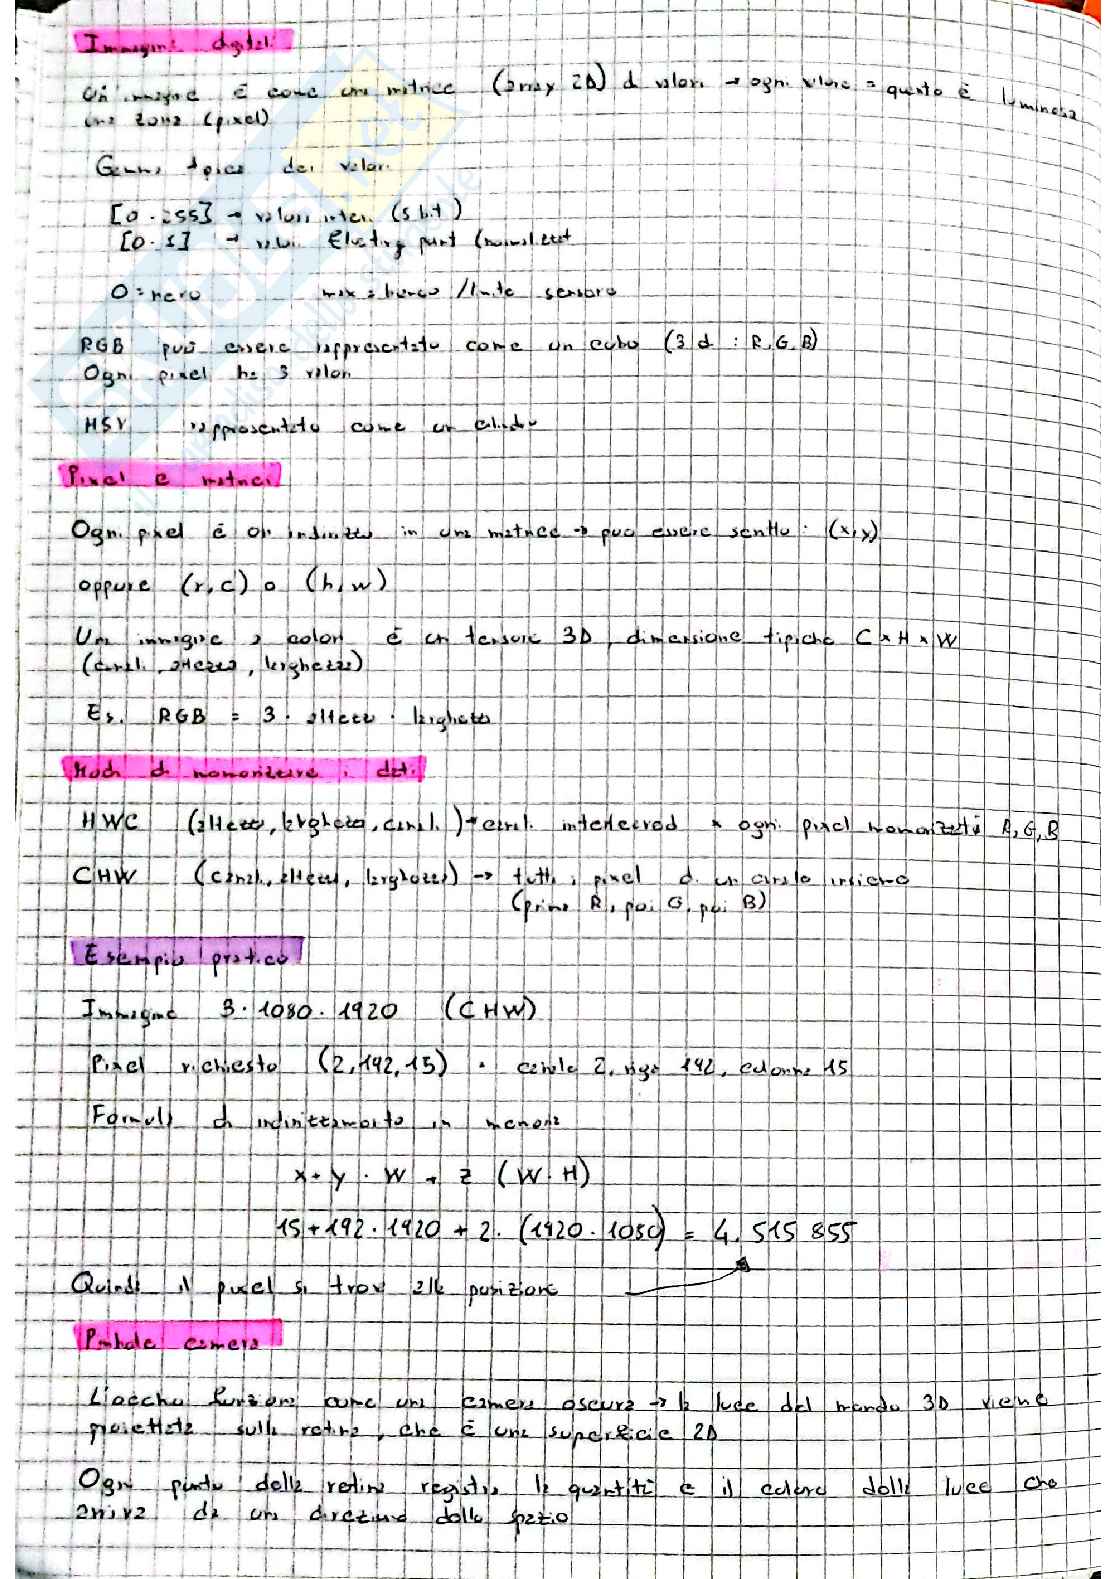 Immagini digitali
Un'immagine è come una matrice (array 2D) di valori → ogni valore = quanto è luminosa
una zona (pixel)
Gamma tipica dei valori
[0.255] → valori interi (8 bit)
[0.1] → valori floating point (normalizzat
0 = nero max = bianco / limite sensore
RGB può essere rappresentato come un cubo (3d : R,G,B)
Ogni pixel ha 3 valori
HSV rappresentato come un cilindro
Pixel e matrici
Ogni pixel è un indirizzo in una matrice → può essere scritto: (x,y)
oppure (r,c) o (h,w)
Una immagine a colori è un tensore 3D, dimensione tipiche C×H×W
(canali, altezza, larghezza)
Es. RGB = 3 · altezza · larghezza
Modi di memorizzare i dati
HWC (altezza, larghezza, canali) → canali interleaved × ogni pixel memorizzati R,G,B
CHW (canali, altezza, larghezza) → tutti i pixel di un canale insieme
(prima R, poi G, poi B)
Esempio pratico
Immagine 3·1080·1920 (CHW)
Pixel richiesto (2,192,15) · canale 2, riga 192, colonna 15
Formula di indirizzamento in memoria
x + y · W + z (W·H)
15+192·1920+2·(1920·1080) = 4.515 855
Quindi il pixel si trova alla posizione
Pinhole camera
L'occhio funziona come una camera oscura → la luce del mondo 3D viene
proiettata sulla retina, che è una superficie 2D
Ogni punto della retina registra la quantità e il colore della luce che
arriva da una direzione dello spazio